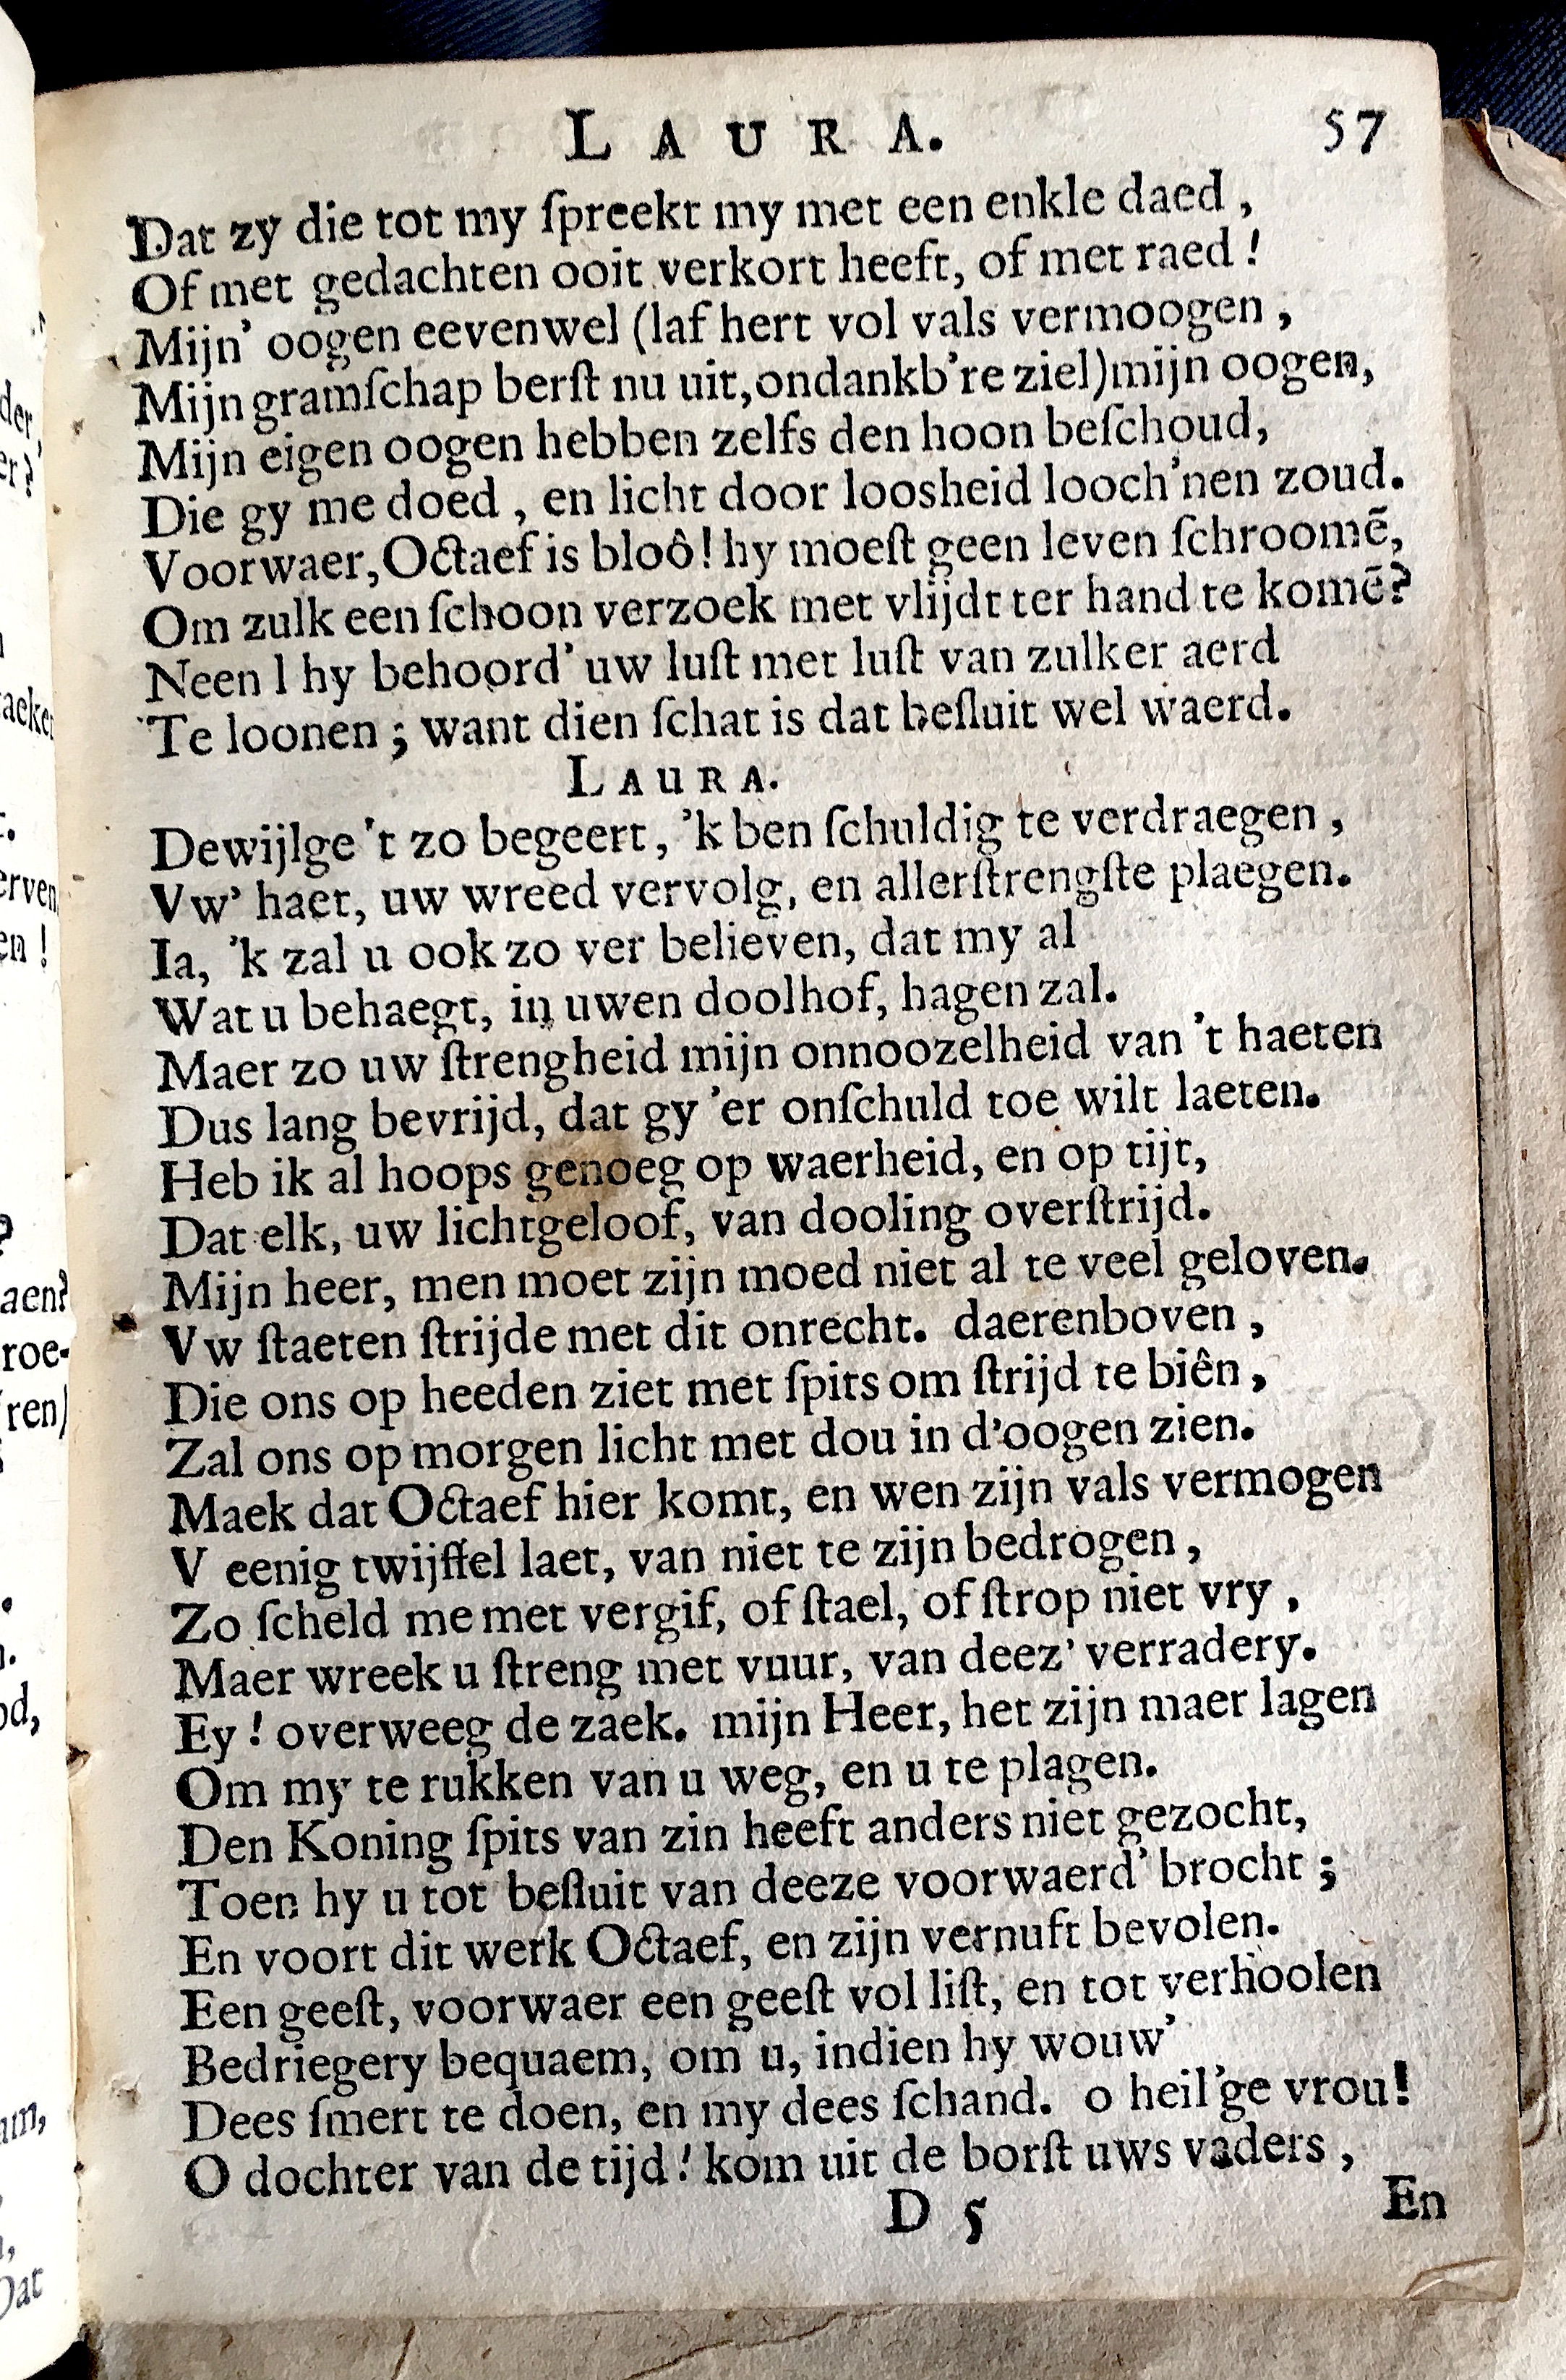 LAURA. 57
Dat zy die tot my ſpreekt my met een enkle daed ,
Of met gedachten ooit verkort heeft, of met raed !
Mijn' oogen eevenwel (laf hert vol vals vermoogen ,
Mijn gramſchap berſt nu uit, ondankb're ziel) mijn oogen,
Mijn eigen oogen hebben zelfs den hoon beſchoud,
Die gy me doed , en licht door loosheid looch'nen zoud.
Voorwaer, Octaef is bloô! hy moeſt geen leven ſchroomē,
Om zulk een ſchoon verzoek met vlijdt ter hand te komē?
Neen l hy behoord' uw luſt met luſt van zulker aerd
Te loonen ; want dien ſchat is dat beſluit wel waerd.
LAURA.
Dewijlge 't zo begeert, 'k ben ſchuldig te verdraegen ,
Vw' haet, uw wreed vervolg, en allerſtrengſte plaegen.
Ia, 'k zal u ook zo ver believen, dat my al
Wat u behaegt, in uwen doolhof, hagen zal.
Maer zo uw ſtrengheid mijn onnoozelheid van 't haeten
Dus lang bevrijd, dat gy 'er onſchuld toe wilt laeten.
Heb ik al hoops genoeg op waerheid, en op tijt,
Dat elk, uw lichtgeloof, van dooling overſtrijd.
Mijn heer, men moet zijn moed niet al te veel geloven.
Vw ſtaeten ſtrijde met dit onrecht. daerenboven ,
Die ons op heeden ziet met ſpits om ſtrijd te biên ,
Zal ons op morgen licht met dou in d'oogen zien.
Maek dat Octaef hier komt, en wen zijn vals vermogen
V eenig twijffel laet, van niet te zijn bedrogen ,
Zo ſcheld me met vergif, of ſtael, of ſtrop niet vry ,
Maer wreek u ſtreng met vuur, van deez' verradery.
Ey ! overweeg de zaek. mijn Heer, het zijn maer lagen
Om my te rukken van u weg, en u te plagen.
Den Koning ſpits van zin heeft anders niet gezocht,
Toen hy u tot beſluit van deeze voorwaerd' brocht ;
En voort dit werk Octaef, en zijn vernuft bevolen.
Een geeſt, voorwaer een geeſt vol liſt, en tot verhoolen
Bedriegery bequaem, om u, indien hy wouw'
Dees ſmert te doen, en my dees ſchand. o heil'ge vrou!
O dochter van de tijd ! kom uit de borſt uws vaders ,
D 5 En